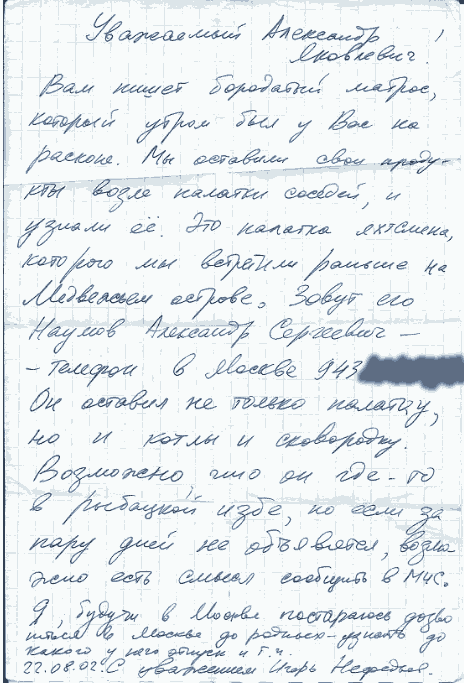 Уважаемый Александр
Яковлевич!
Вам пишет бородатый матрос,
который утром был у Вас на
раскопе. Мы оставили свои проду-
кты возле палатки соседей, и
узнали её. Это палатка яхтсмена,
которого мы встретили раньше на
Медвежьем острове. Зовут его
Наумов Александр Сергеевич —
– Телефон в Москве 943
Он оставил не только палатку,
но и котлы и сковородку.
Возможно, что он где-то
в рыбацкой избе, но если за
пару дней не объявится, возмо
жно есть смысл сообщить в МЧС.
Я, будучи в Москве постараюсь дозво
ниться в Москве до родных – узнать до
какого у него отпуск и т.ч.
22.08.02. С уважением Игорь